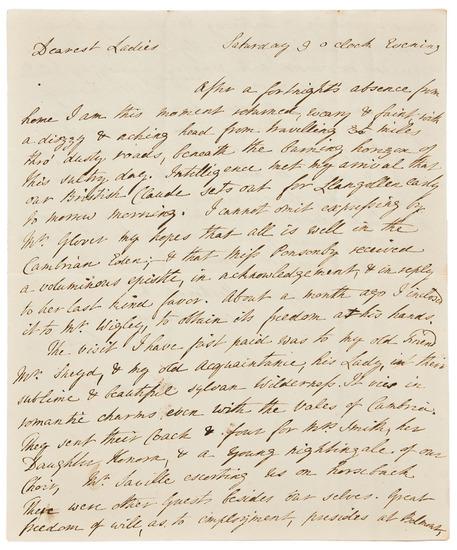 Dearest Ladies Saturday 9 o clock Evening
After a fortnight's absence from
home I am this moment returned, weary & faint, with
a dizzy & aching head from travelling 32 miles
thro' dusty roads, beneath the burning horizon of
this sultry day. Intelligence met my arrival that
our Bristish Claude sets out for Llangollen early
to morrow morning. I cannot omit expressing by
Mr. Glover my hopes that all is well in the
Cambrian Eden; & that Miss Ponsonby received
a voluminous epistle, in acknowledgement, & in reply
to her last kind favor. About a month ago I inclosed
it to Mr. Wigley, to obtain its freedom at his hands.
The visit I have just paid was to my old Friend
Mr. Sneyd, & my old Acquaintance, his Lady, in their
sublime & beautiful sylvan Wilderness. It vies in
romantic charms even with the vales of Cambria.
They sent their Coach & four for Mrs Smith, her
Daughter, Honora, & a young nightingale of our
Choir, Mr. Saville escorting us on horseback
There were other Guest besides our selves. Great
freedom of will, as to employment, presides at Belmont,